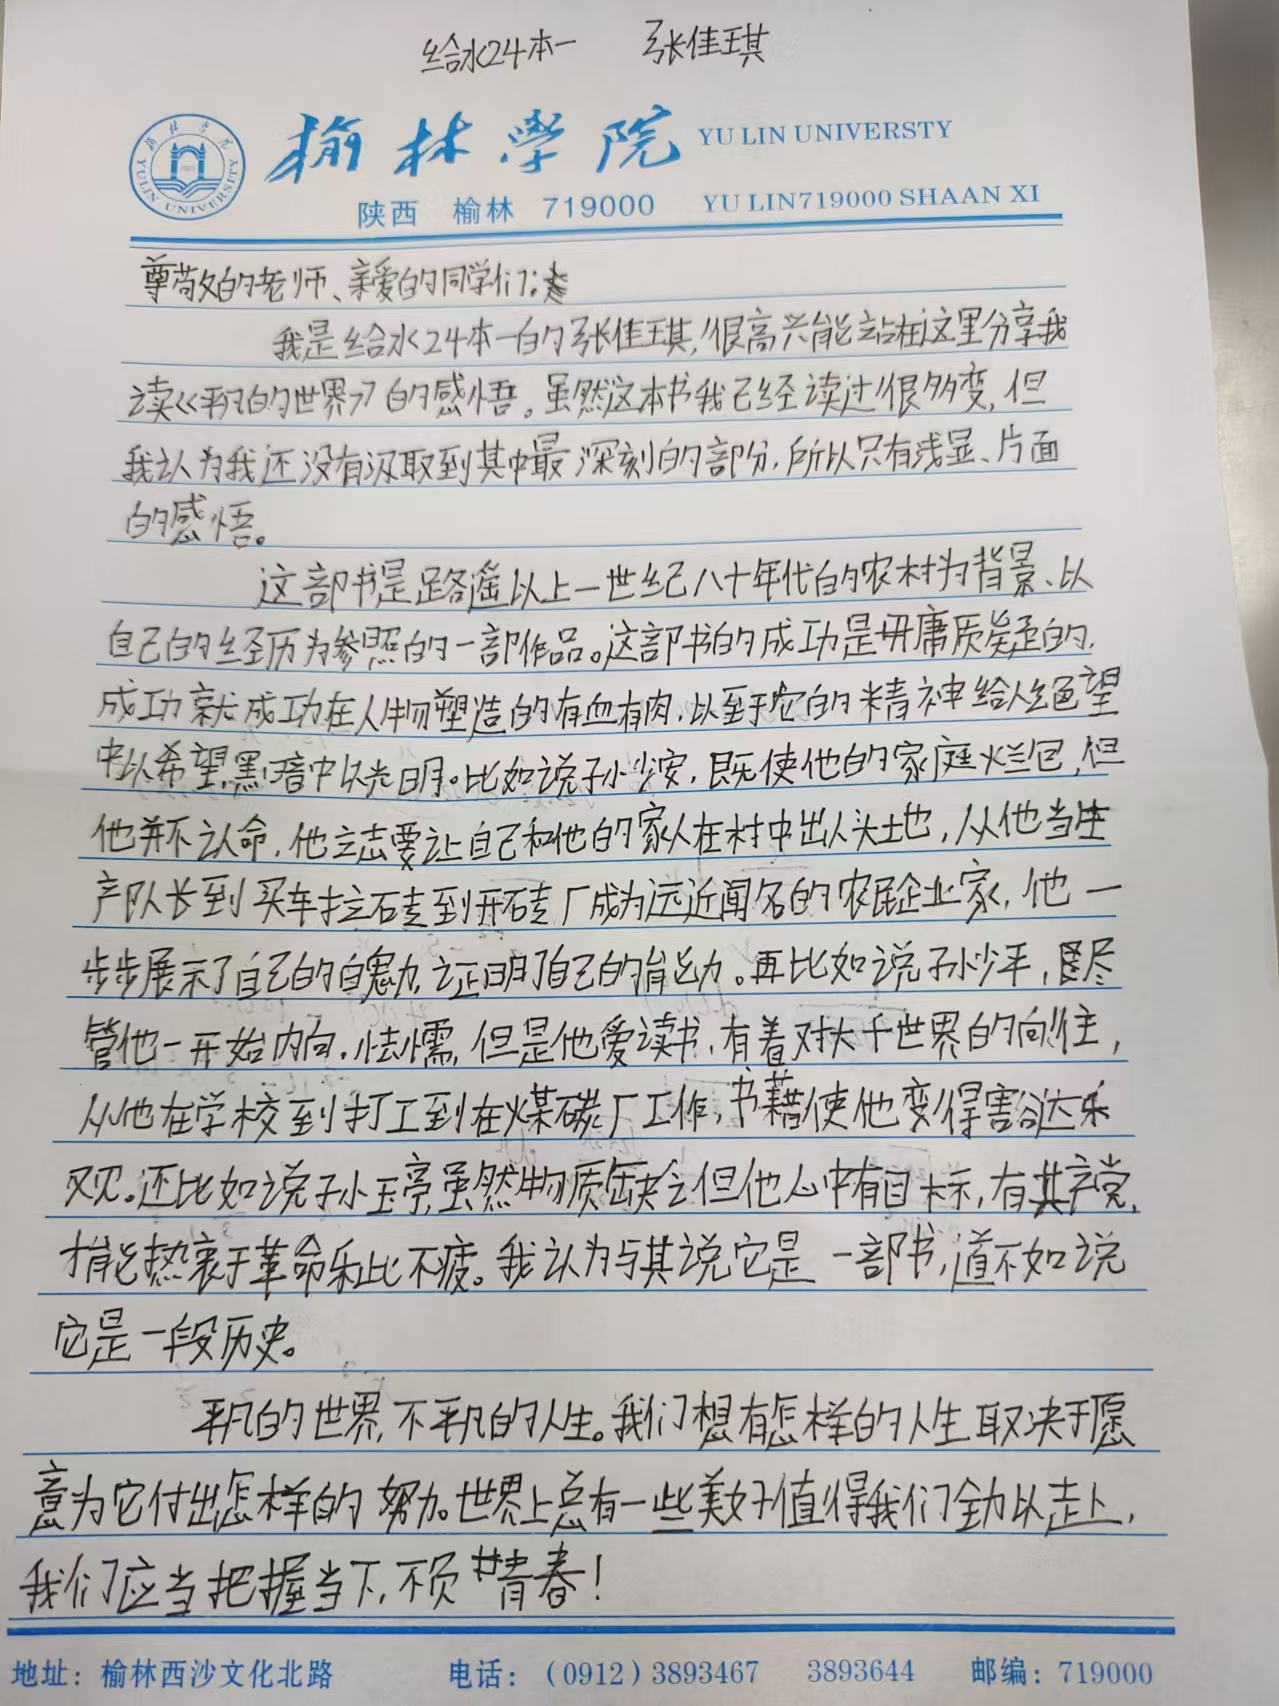 给水24本一 张佳琪
榆林学院 YU LIN UNIVERSTY
YULIN UNIVERSITY
陕西 榆林 719000 YU LIN719000 SHAAN XI
尊敬的老师、亲爱的同学们:
我是给水24本一的张佳琪,很高兴能站在这里分享我
读《平凡的世界》的感悟。虽然这本书我已经读过很多变,但
我认为我还没有汲取到其中最深刻的部份,所以只有浅显、片面
的感悟。
这部书是路遥以上一世纪八十年代的农村为背景、以
自己的经历为参照的一部作品。这部书的成功是毋庸质疑的,
成功就成功在人物塑造的有血有肉,以至于它的精神给人绝望
中以希望,黑暗中以光明。比如说孙少安,既使他的家庭烂包,但
他并不认命,他立志要让自己和他的家人在村中出人头地,从他当生
产队长到买车拉砖到开砖厂成为远近闻名的农民企业家,他一
步步展示了自己的自魄力,证明了自己的能力。再比如说孙少平,尽
管他一开始内向,怯懦,但是他爱读书,有着对大千世界的向往,
从他在学校到打工到在煤碳厂工作,书籍使他变得豁达乐
观。还比如说孙玉亭,虽然物质缺乏但他心中有目标,有共产党,
才能热衷于革命乐此不疲。我认为与其说它是一部书,道不如说
它是一段历史。
平凡的世界,不平凡的人生。我们想有怎样的人生取决于愿
意为它付出怎样的努力。世界上总有一些美好值得我们全力以赴,
我们应当把握当下,不负青春!
地址:榆林西沙文化北路 电话:(0912)3893467 3893644 邮编:719000